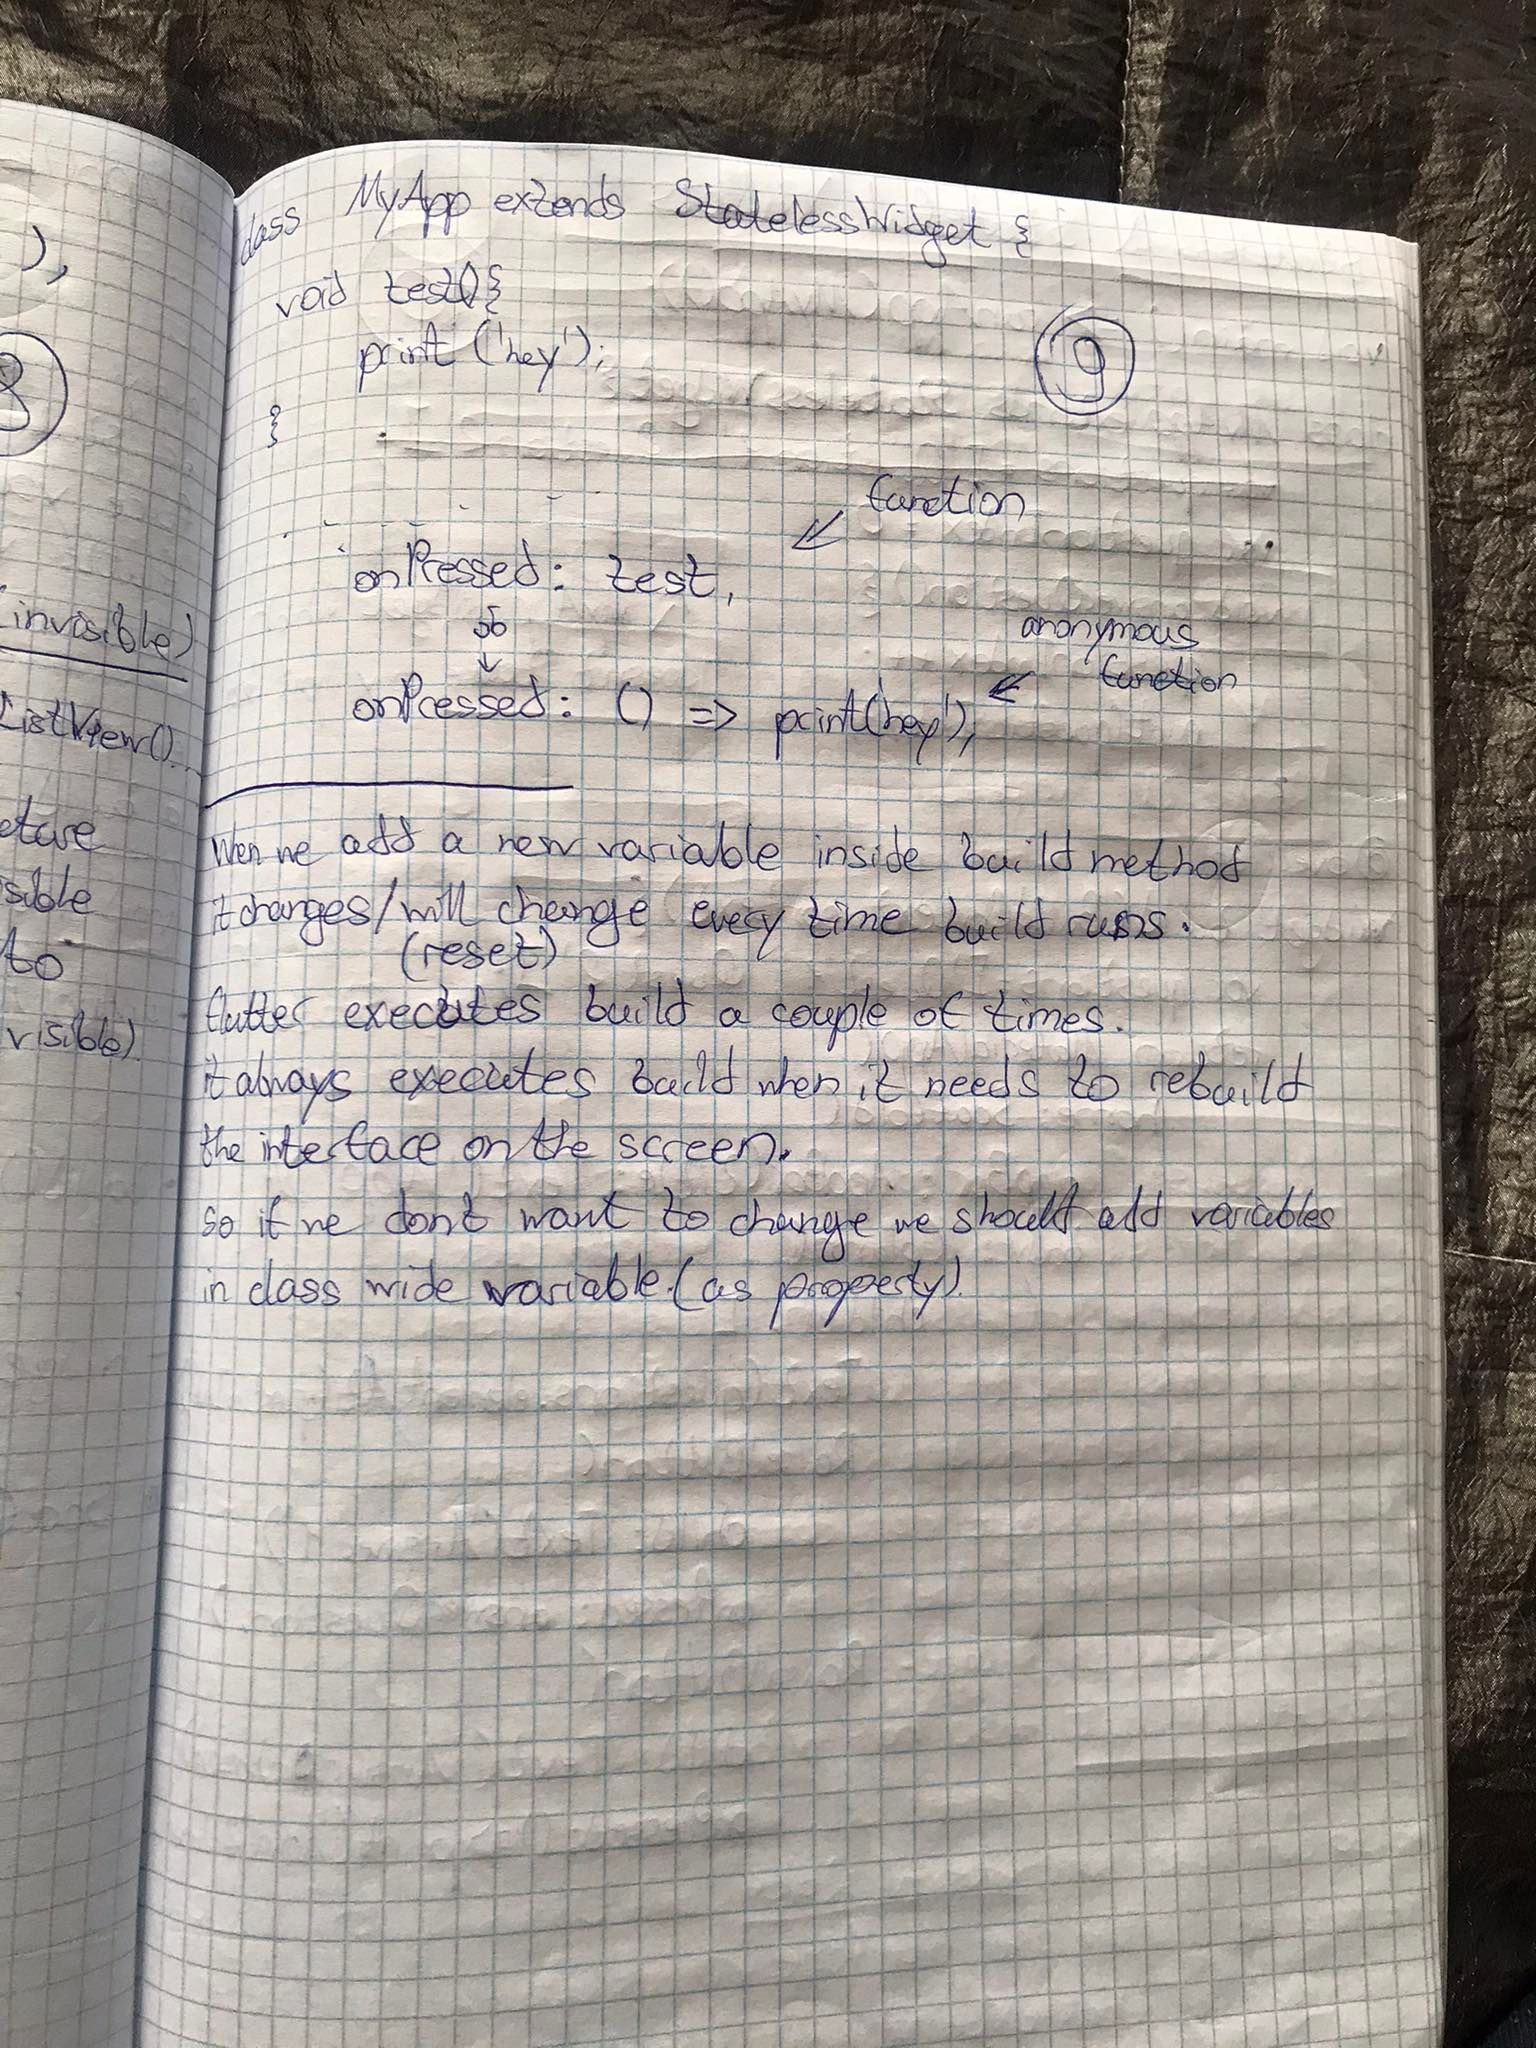 ),
8
(invisible)
ListView()...
sible
to
visible).
class MyApp extends StatelessWidget {
void test(){
print ('hey');
}
9
function
onPressed: test,
anonymous
function
onPressed: () => print('hey'),
When we add a new variable inside build method
it changes/will change every time build runs.
(reset)
flutter executes build a couple of times.
it always executes build when it needs to rebuild
the interface on the screen.
so if we don't want to change we should add variables
in class wide variable. (as property).